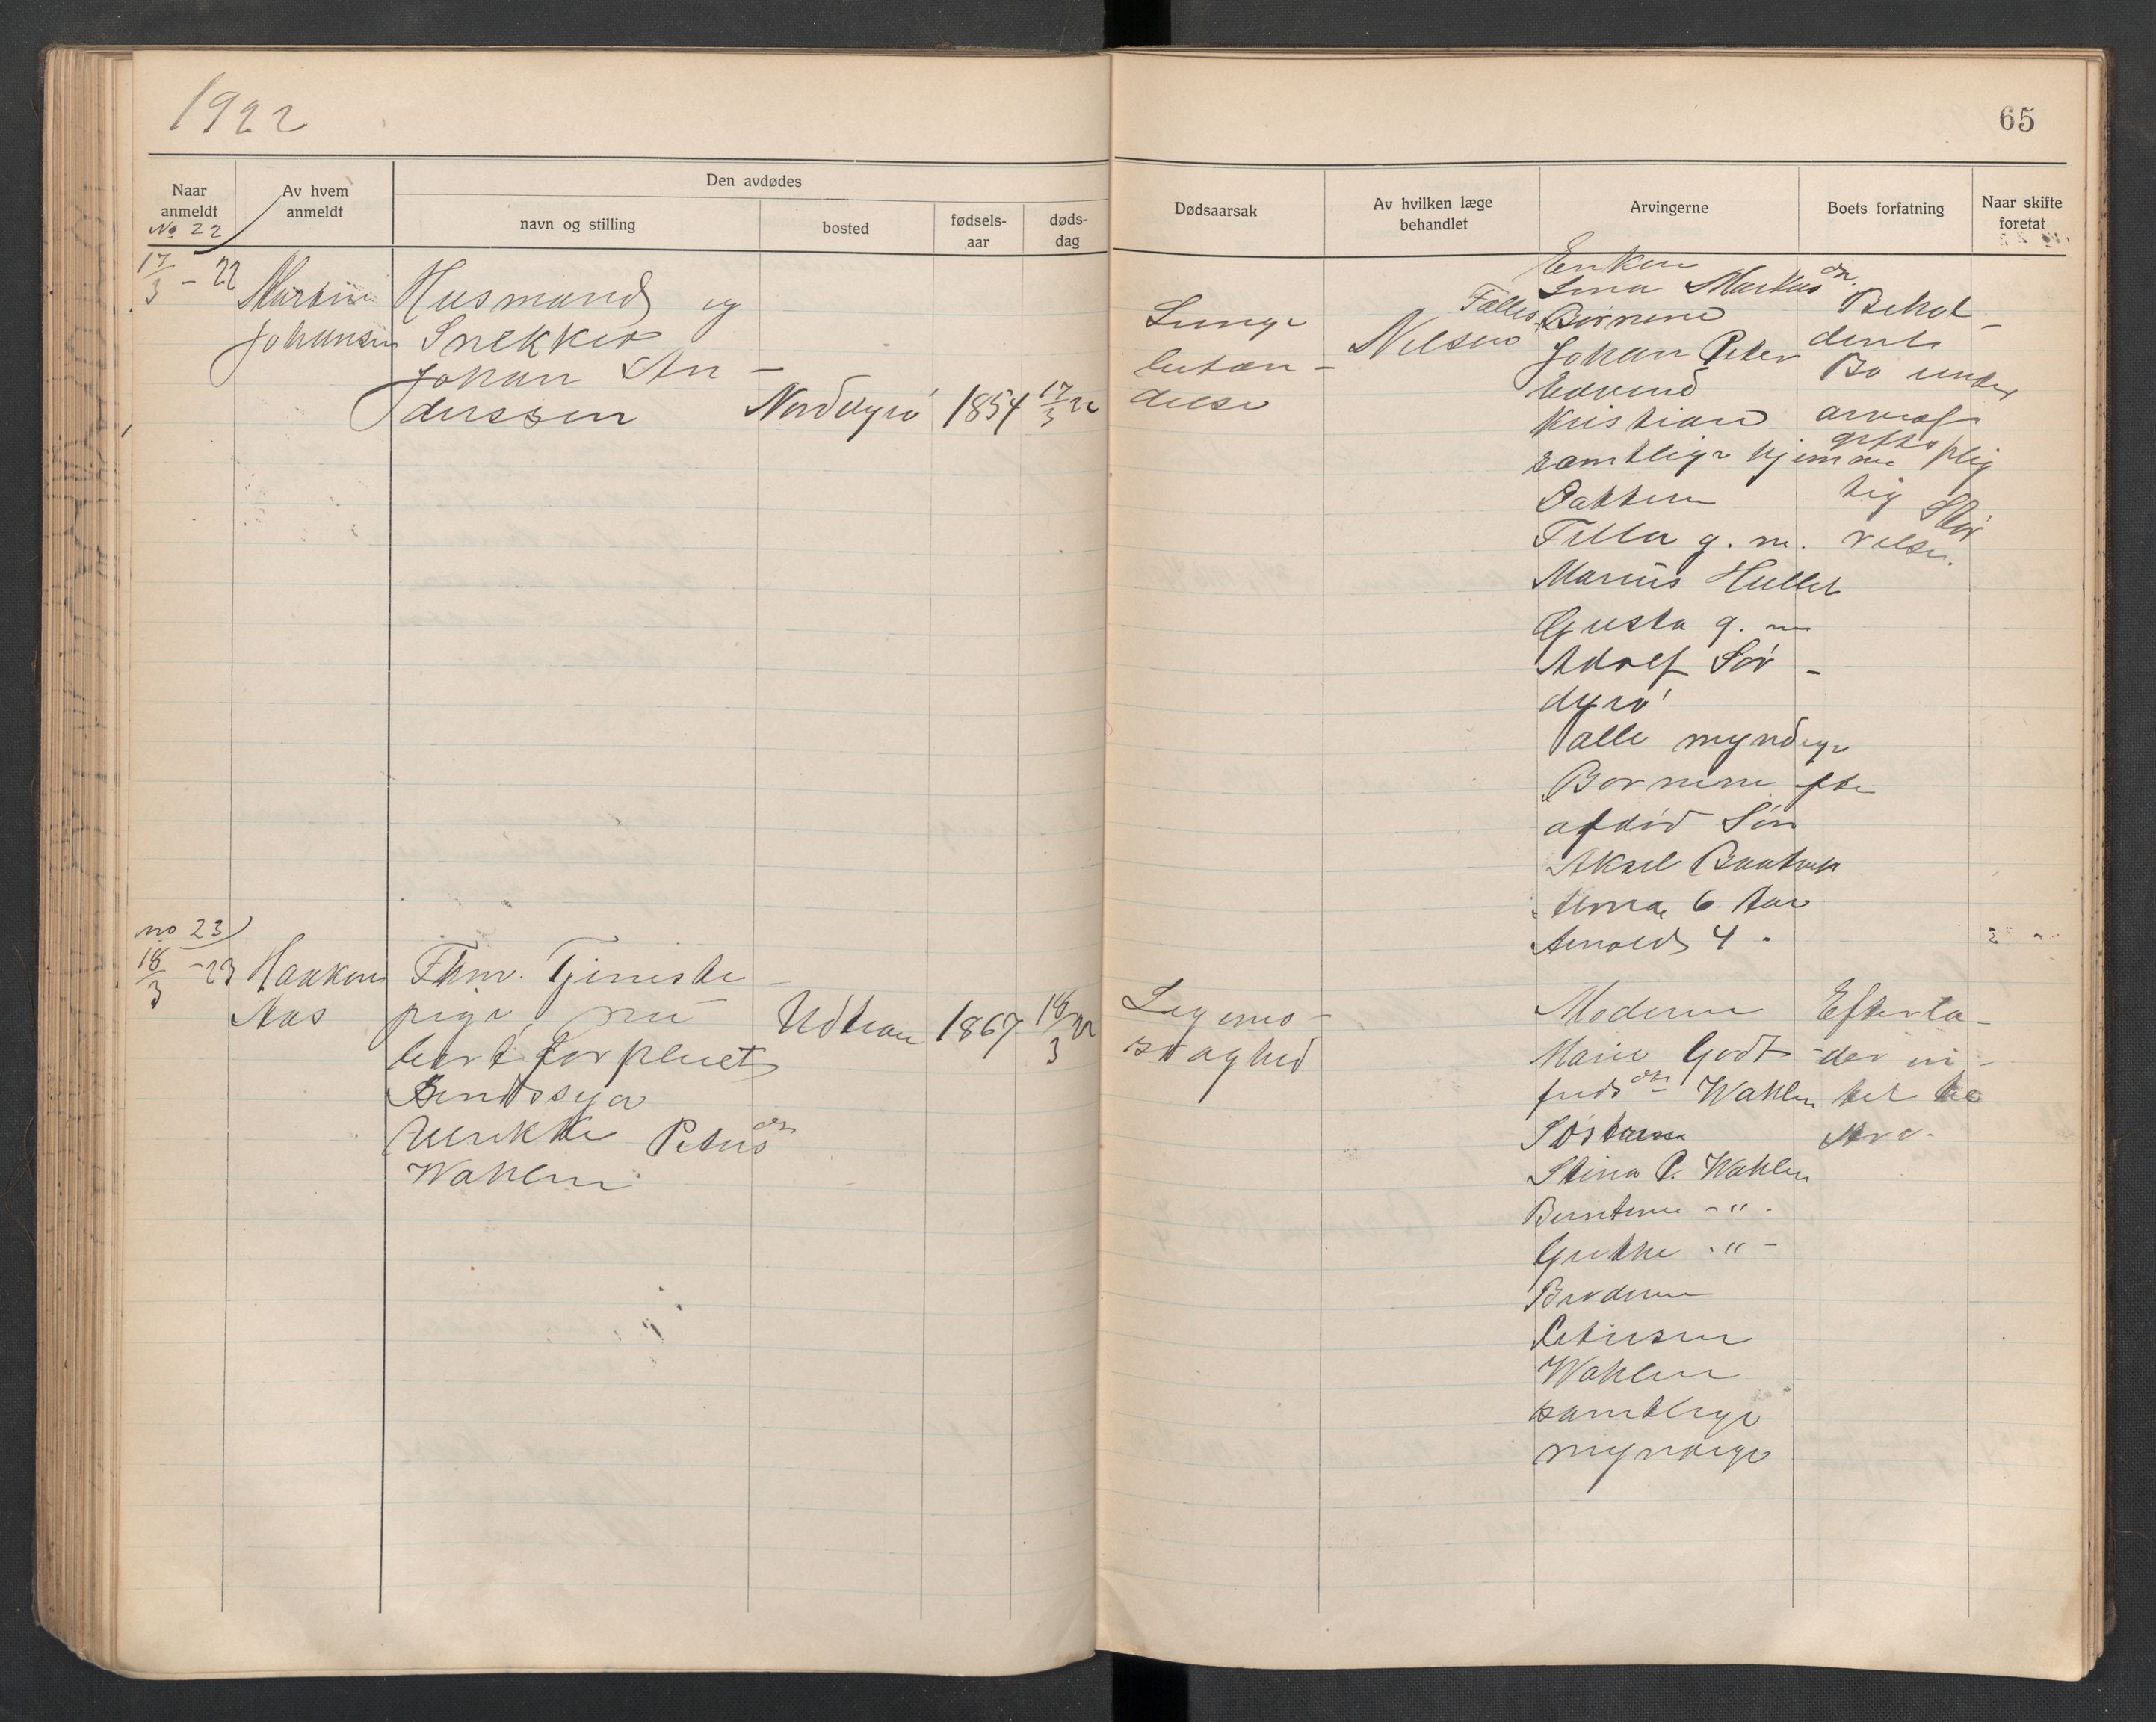 1922
65
Naar anmeldt
Av hvem anmeldt
Den avdødes
navn og stilling
bosted
fødsels-aar
døds-dag
Dødsaarsak
Av hvilken læge behandlet
Arvingerne
Boets forfatning
Naar skifte foretat
No 22
17/3 - 22
Martin
Johansen
Husmand og
Snekker
Johan An-
derssen
Norddyrø
1854
17/3 22
Lunge
betæn-
delse
Nilsen
Enken
Lina Markusdn.
Fælles Børnene
Johan Peter
Edvind
Kristian
samtlige hjemme
Døttrene
g. m.
Marius Hullet
Gusta g. m
Adolf Sør-
dyrø
alle myndige
Børnene efter
afdød Søn
Aksel
6 Aar
Arnold 4 "
Behol-
dent
Bo under
arveaf
giftsplig
tig Stør
relse.
no 23
18/3 - 22
Haakon
Aas
Fhnv. Tjeneste-
pige nu
forpleiet
Sindssyg
Ulrikke Petersdn
Wahlen
Udtian
1867
18/3 22
Legems-
svaghed
Moderen
Marie Godt-
fredsdn Wahlen
Søstrene
Stina P. Wahlen
Berntine - " -
Grethe - " -
Broderen
Wahlen
samtlige
myndige
Efterla-
der in-
tet til
Arv.